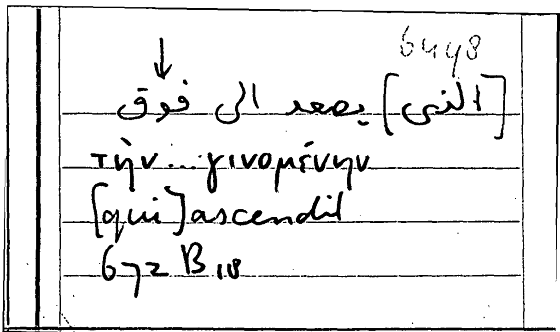 6448
↓
[الذى] يصعد الى فوق
τὴν...γινομένην
[qui] ascendit
672 B 18